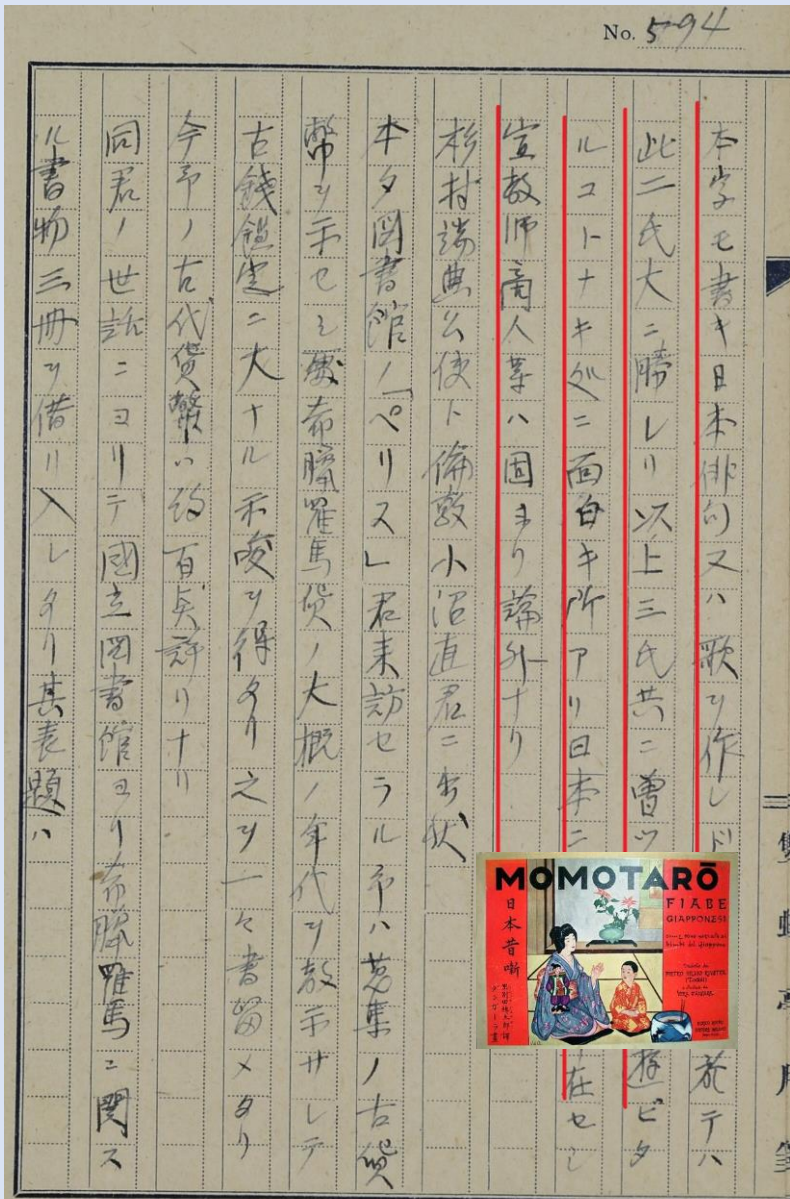 No. 594
本字モ書キ日本俳句又ハ歌ヲ作レド
於テハ
此二氏大ニ勝レリ以上三氏共ニ曽ツ
遊ビタ
ルコトナキ処ニ面白キ所アリ日本ニ
在セシ
宣教師商人等ハ固より論外ナリ
杉村瑞典公使ト倫敦小沼直君ニ出状
本夕図書館ノ「ペリス」君来訪セラル予ハ蒐集ノ古貨
幣ヲ示セシ処希臘羅馬貨ノ大概ノ年代ヲ教示サレテ
古錢鑑定ニ大ナル示唆ヲ得タリ之ヲ一々書留メタリ
今予ノ古代貨幣ハ約百点許リナリ
同君ノ世話ニヨリテ國立図書館ヨリ希臘羅馬ニ関ス
ル書物三冊ヲ借リ入レタリ其表題ハ
MOMOTARŌ
FIABE
GIAPPONESI
日本昔噺